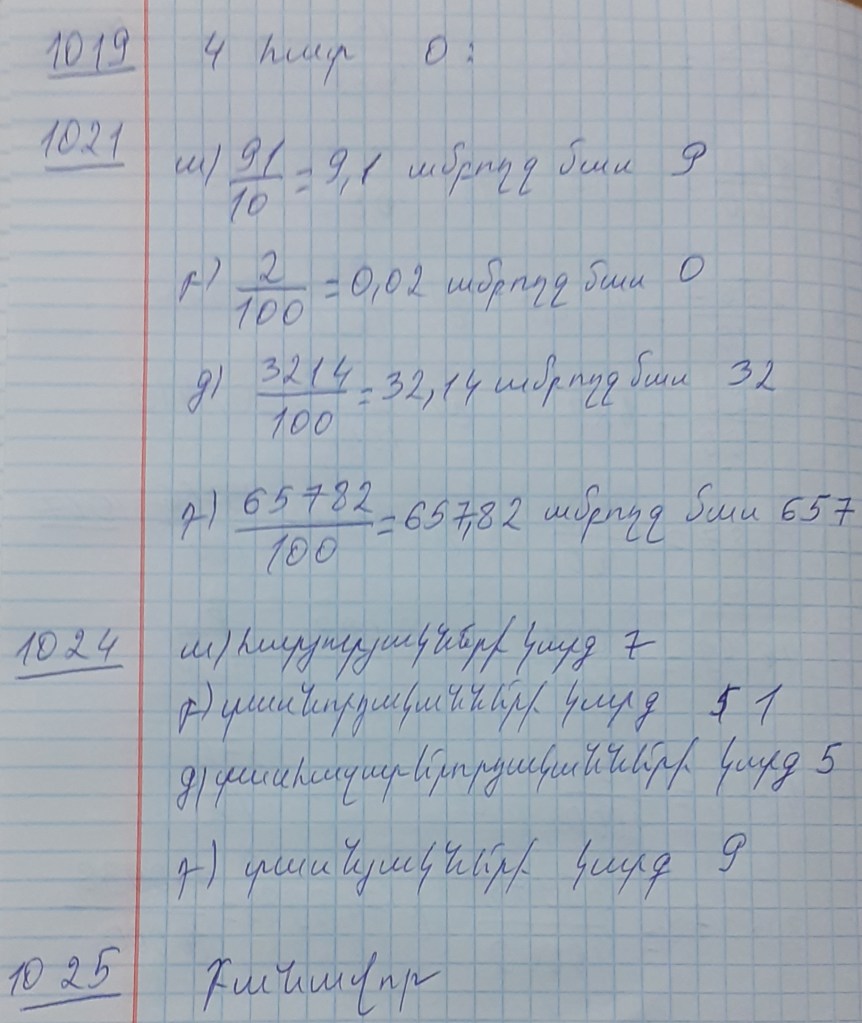 1019 4 հատ 0:
1021 ա) 91/10 = 9,1 ամբողջ մաս 9
բ) 2/100 = 0,02 ամբողջ մաս 0
գ) 3214/100 = 32,14 ամբողջ մաս 32
դ) 65782/100 = 657,82 ամբողջ մաս 657
1024 ա) հարյուրյակների կարգ 7
բ) տասնորդականների կարգ 1
գ) տասհազարերորդականների կարգ 5
դ) տասնյակների կարգ 9
1025